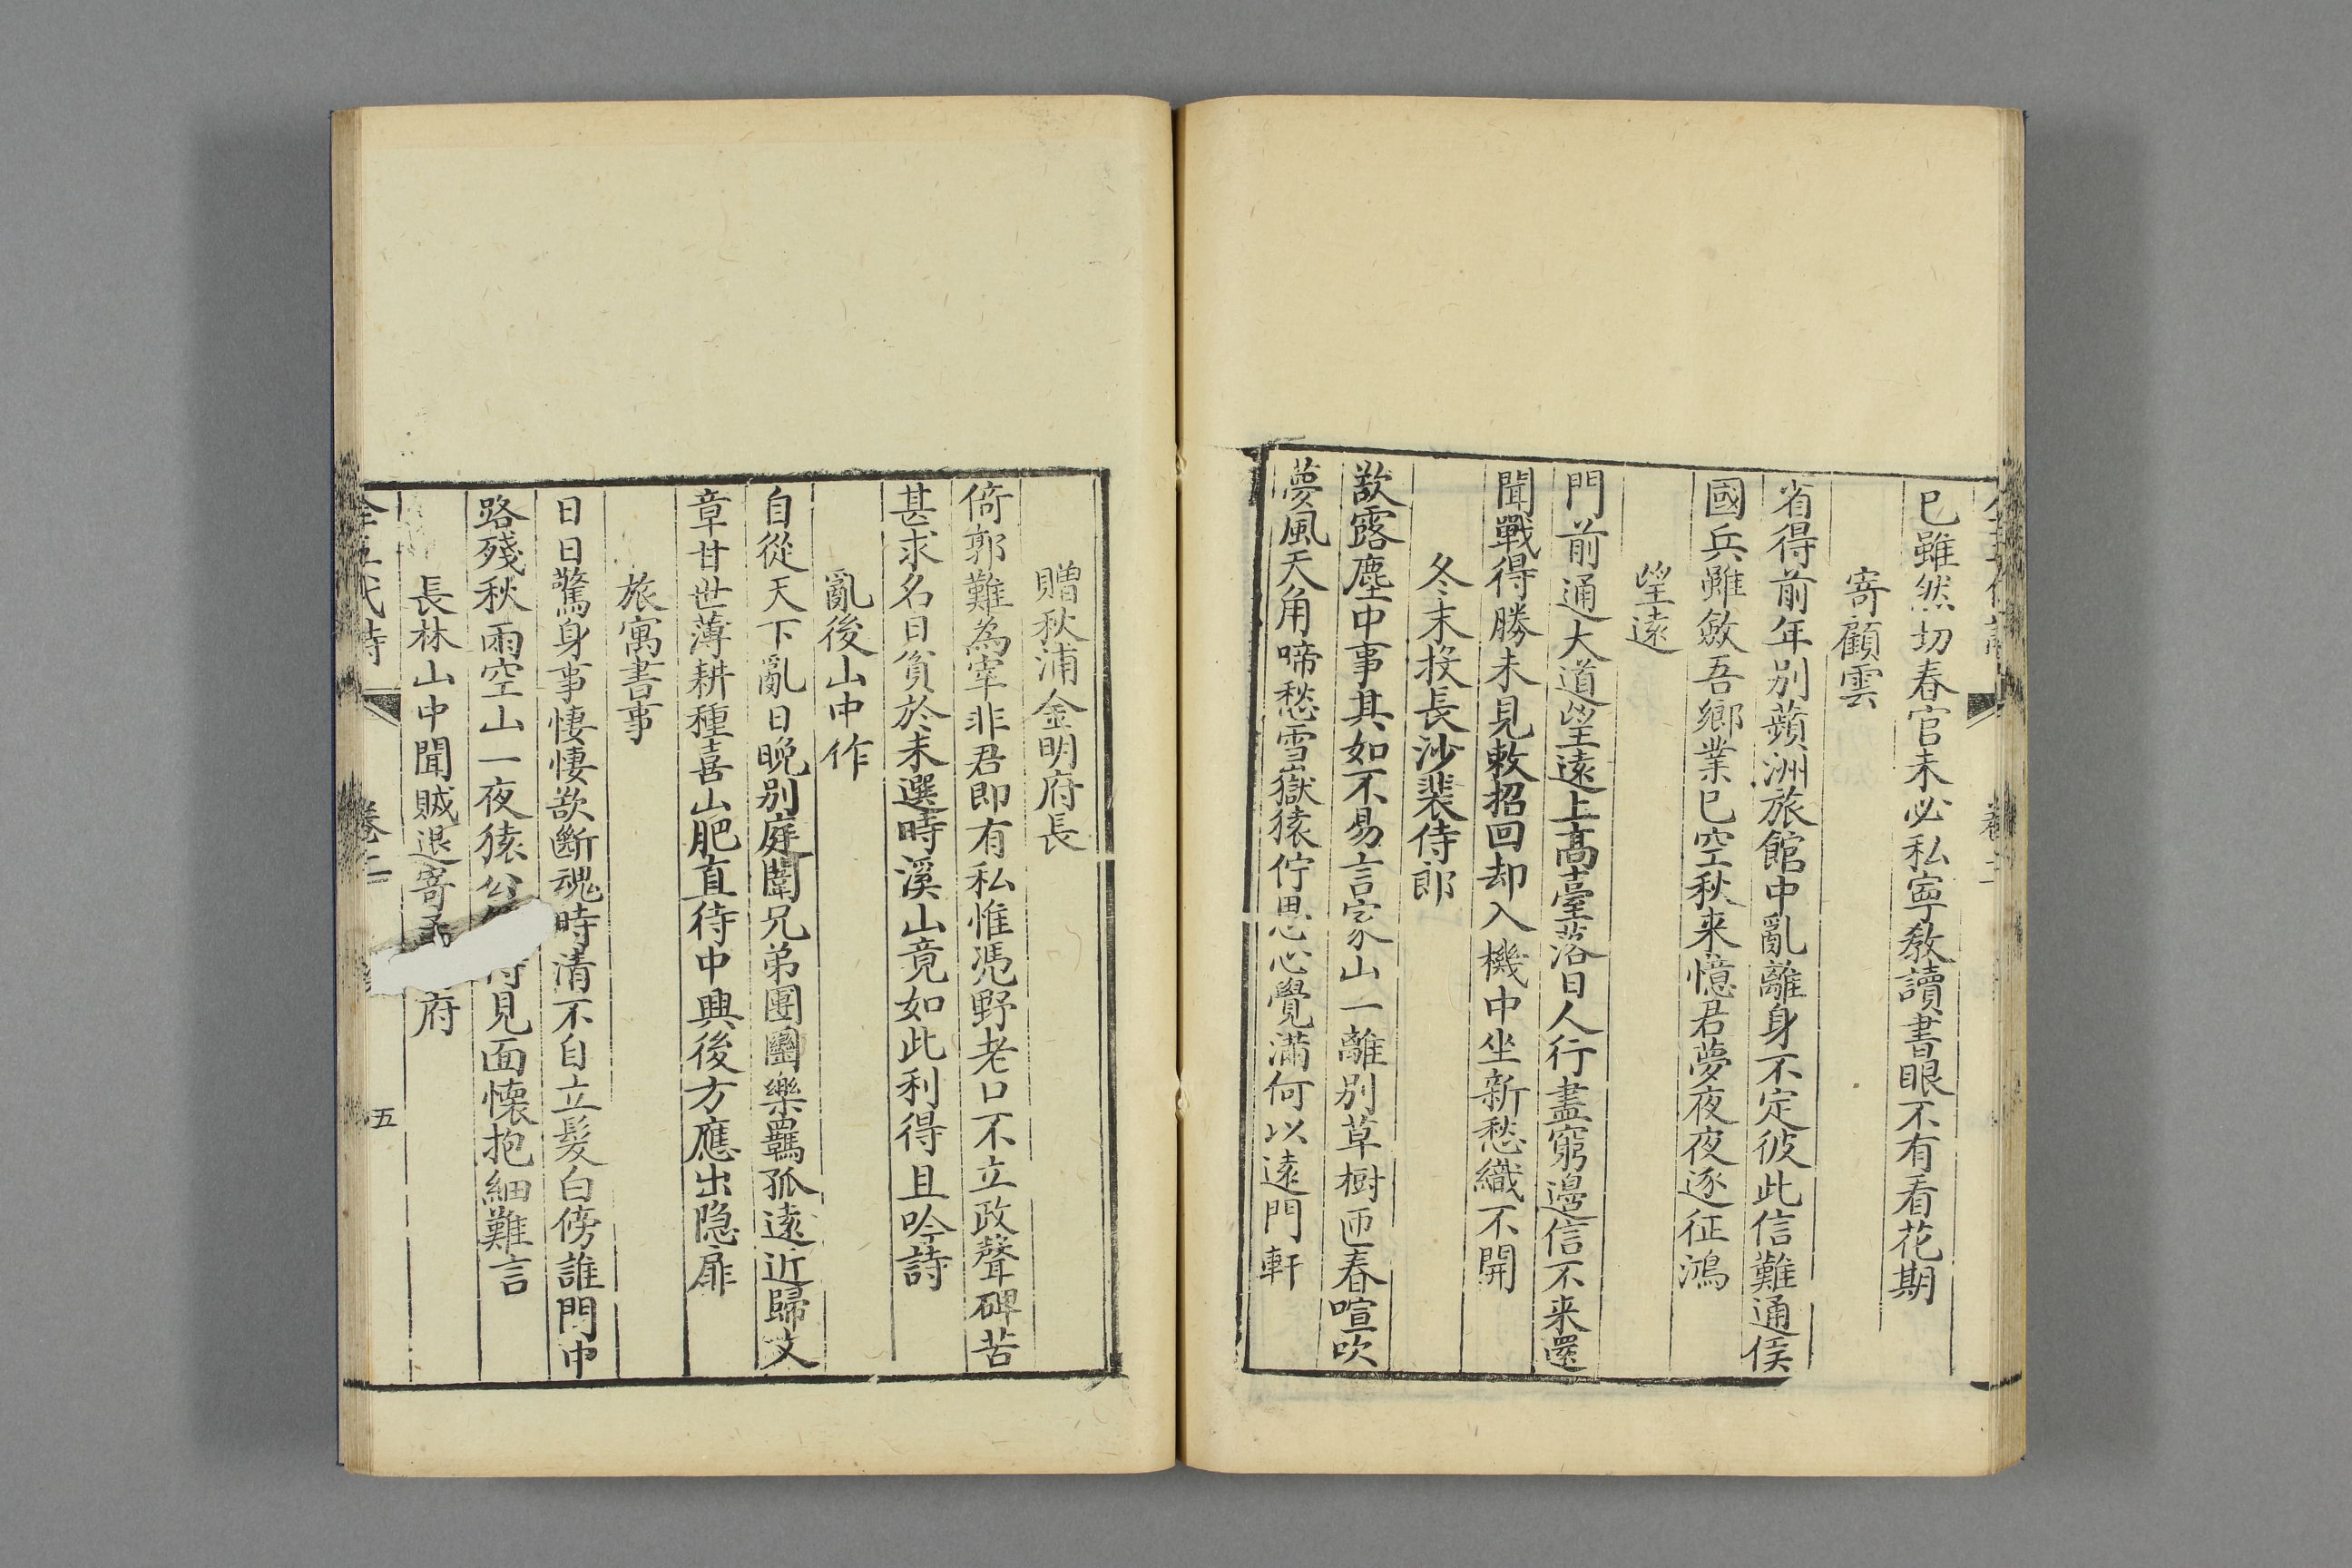 巳雖然切春官未必私寧教讀書眼不有看花期
寄顧雲
省得前年別蘋洲旅館中亂離身不定彼此信難通侯
國兵雖斂吾鄉業巳空秋来憶君夢夜夜逐征鴻
望遠
門前通大道望遠上高臺落日人行盡窮邊信不来還
聞戰得勝未見敕招回却入機中坐新愁織不開
冬末投長沙裴侍郎
歃露塵中事其如不易言家山一離別草樹匝春喧吹
夢風天角啼愁雪嶽猿佇思心覺滿何以遠門軒
贈秋浦金明府長
倚郭難為宰非君即有私惟憑野老口不立政聲碑苦
甚求名日貧於未選時溪山竟如此利得且吟詩
亂後山中作
自從天下亂日晚別庭闈兄弟團圞樂羈孤遠近歸文
章甘世薄耕種喜山肥直待中興後方應出隐扉
旅寓書事
日日驚身事悽悽欲斷魂時清不自立髮白傍誰門中
路殘秋雨空山一夜猿公得見面懐抱細難言
長林山中聞賊退寄孟府
全五代詩
卷二
五